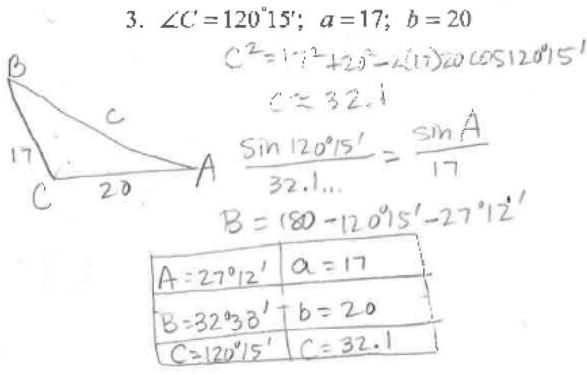 3. ∠C = 120°15'; a = 17; b = 20
C² = 17² + 20² - 2(17)20 cos 120°15'
C ≈ 32.1
B
C
17
C
20
A
sin 120°15' / 32.1... = sin A / 17
B = 180 - 120°15' - 27°12'
A = 27°12' a = 17
B = 32°33' b = 20
C = 120°15' C = 32.1